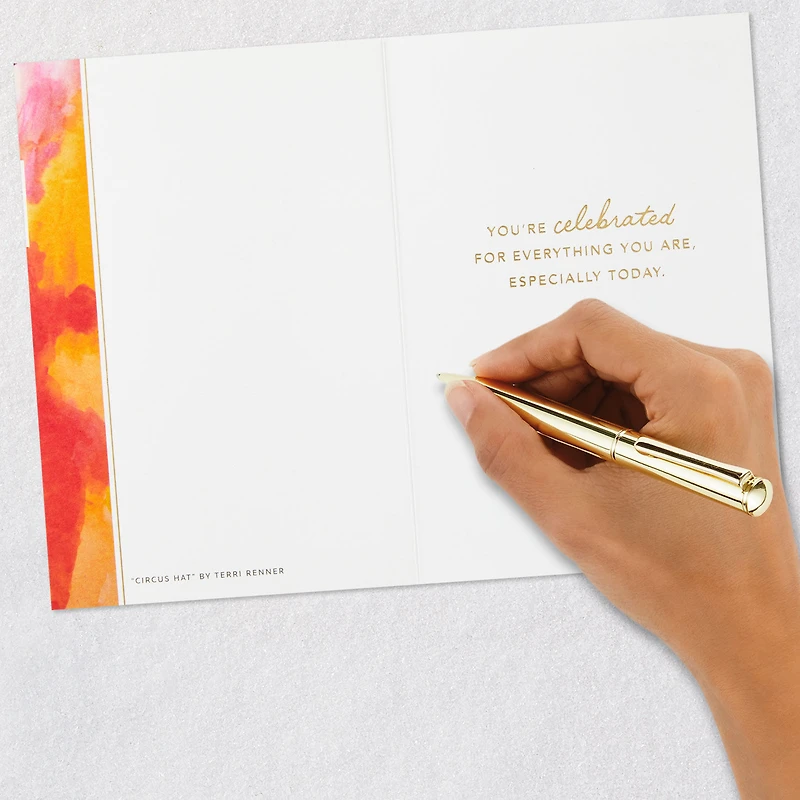 YOU'RE celebrated
FOR EVERYTHING YOU ARE,
ESPECIALLY TODAY.
"CIRCUS HAT" BY TERRI RENNER